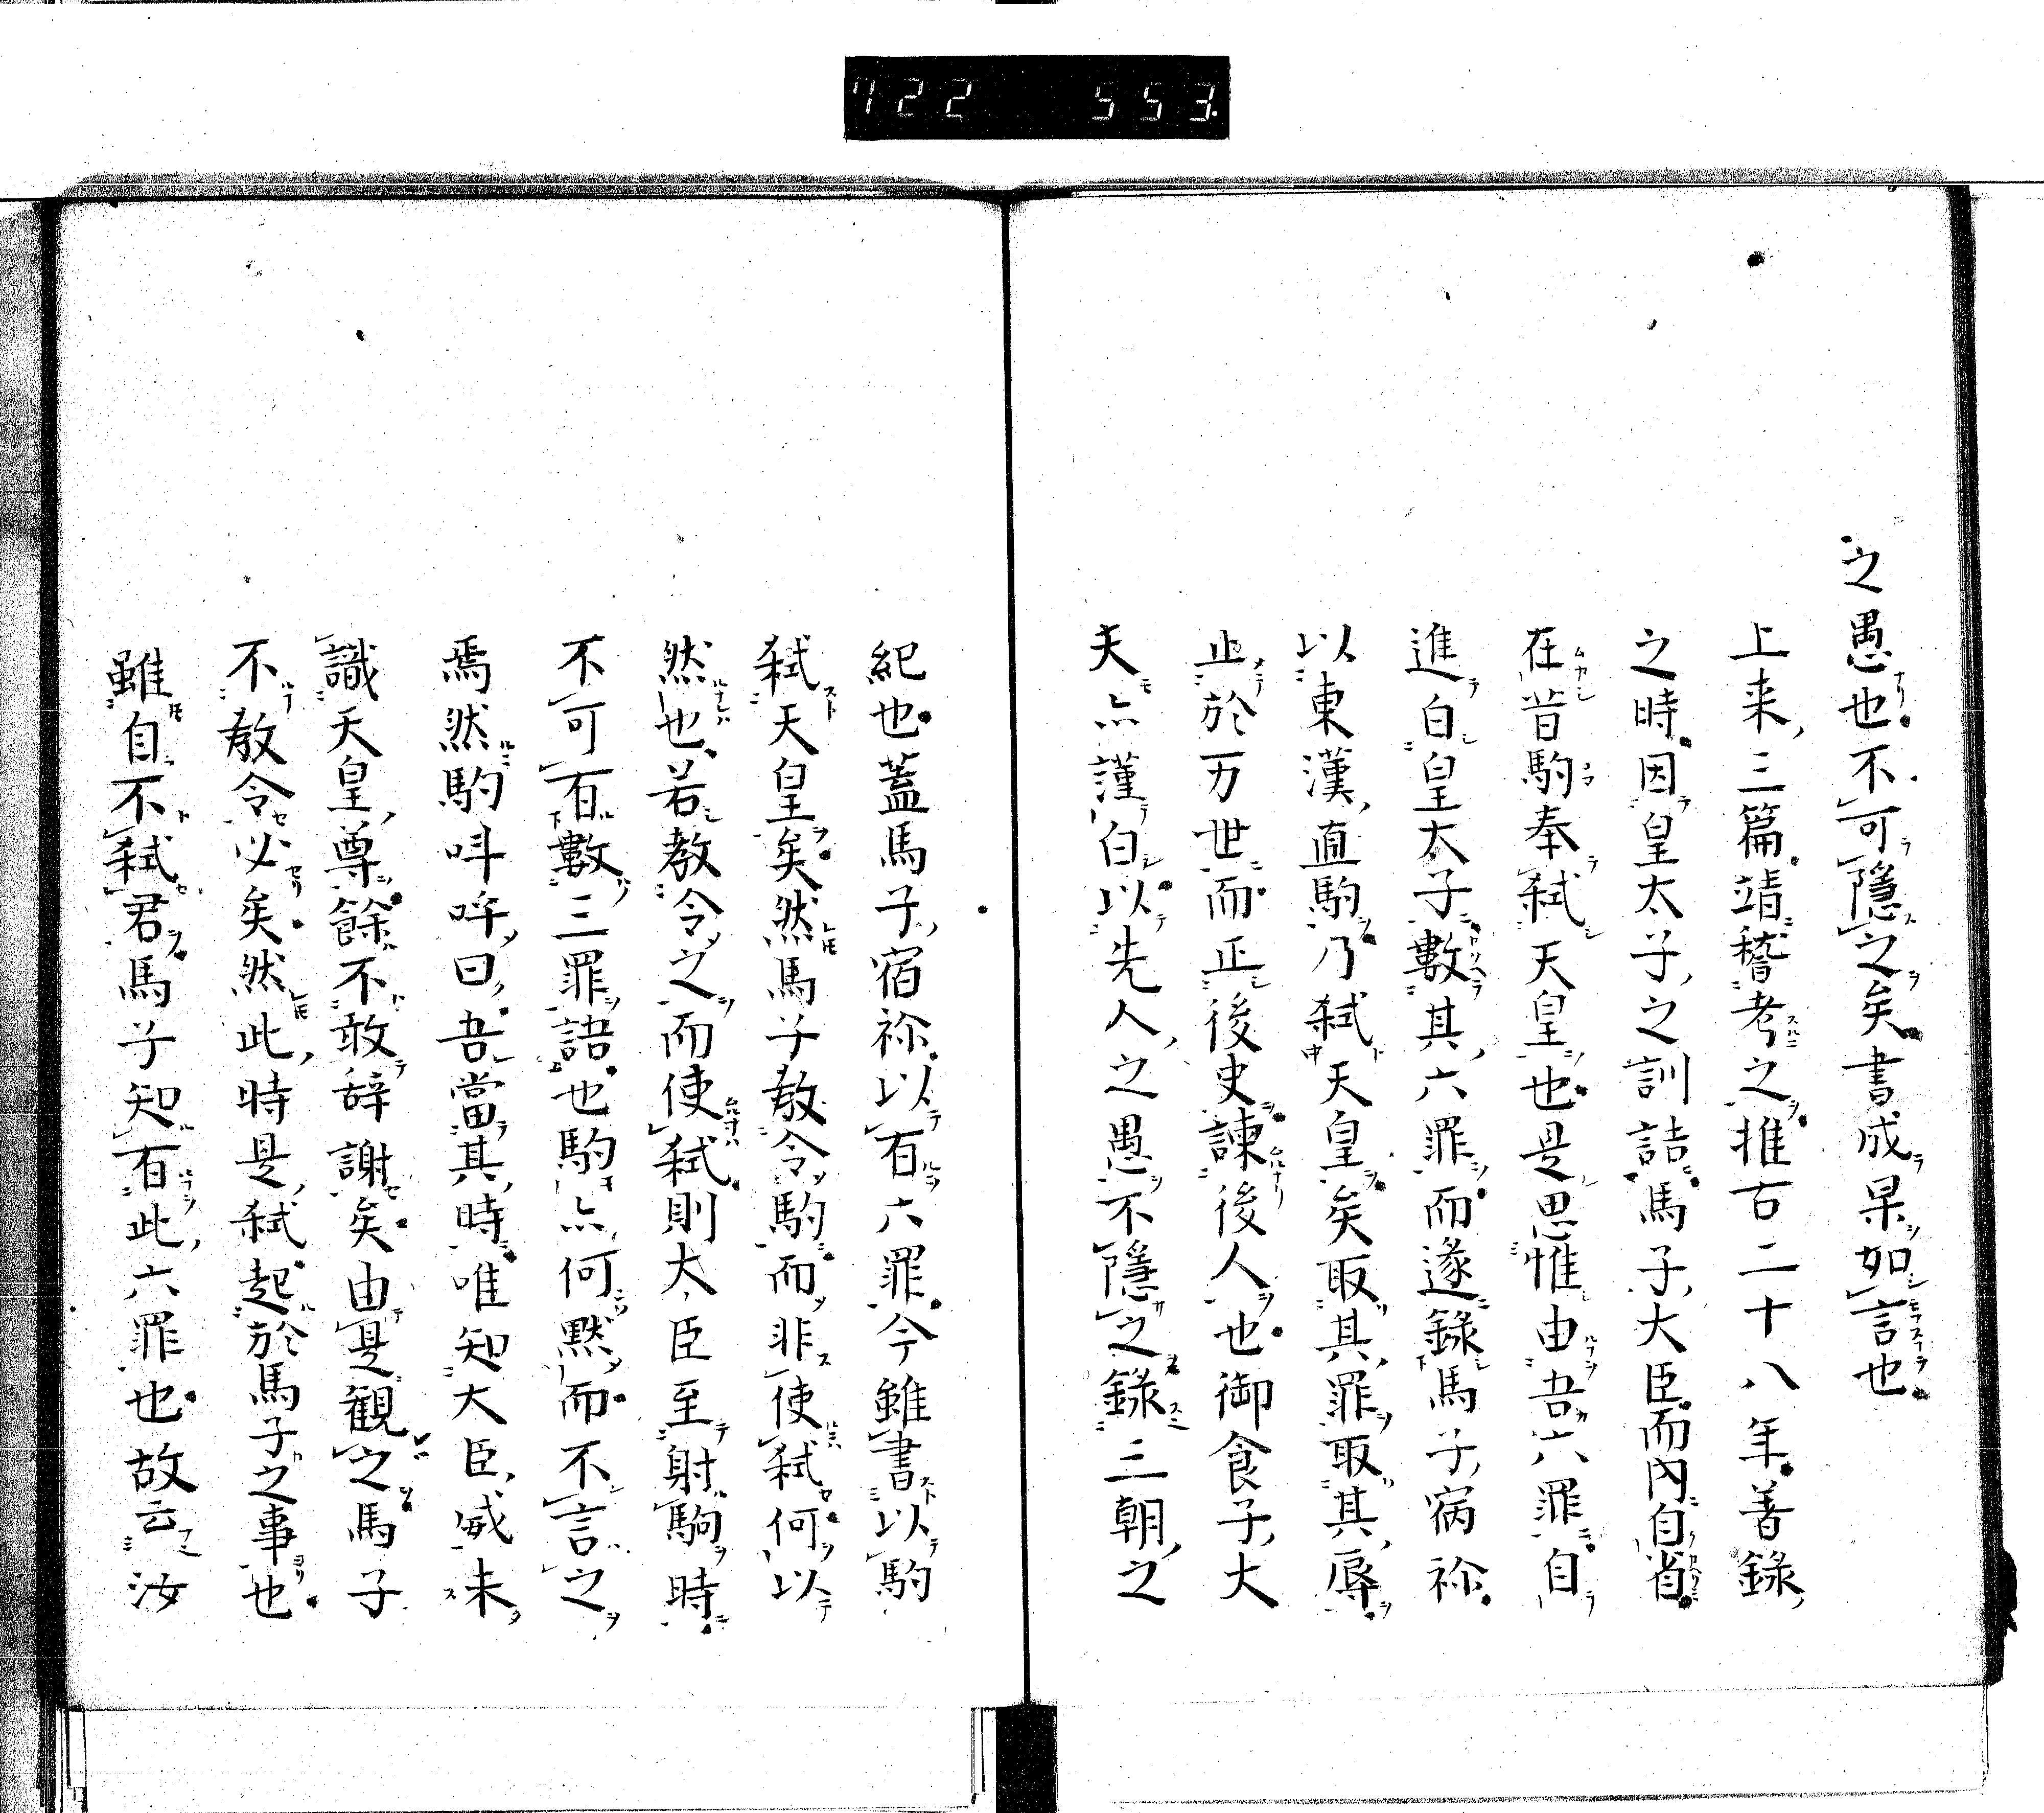 722 553.
之愚也不可隱之矣書成杲如言也
上来三篇靖稽考之推古二十八年善錄
之時因皇太子之訓詰馬子大臣而內自省
在昔駒奉弑天皇也是思惟由吾六罪自
進白皇太子數其六罪而遂錄馬子病祢
以東漢直駒乃弑天皇矣取其罪取其辱
止於万世而正後史諫後人也御食子大
夫亦謹白以先人之愚不隱之錄三朝之
紀也蓋馬子宿祢以有六罪今雖書以駒
弑天皇矣然馬子敎令駒而非使弑何以
然也若敎令之而使弑則大臣至射駒時
不可有數三罪語也駒亦何黙而不言之
焉然駒呌呼曰吾當其時唯知大臣威未
識天皇尊餘不敢辞謝矣由是觀之馬子
不敎令必矣然此時是弑起於馬子之事也
雖自不弑君馬子知有此六罪也故云汝